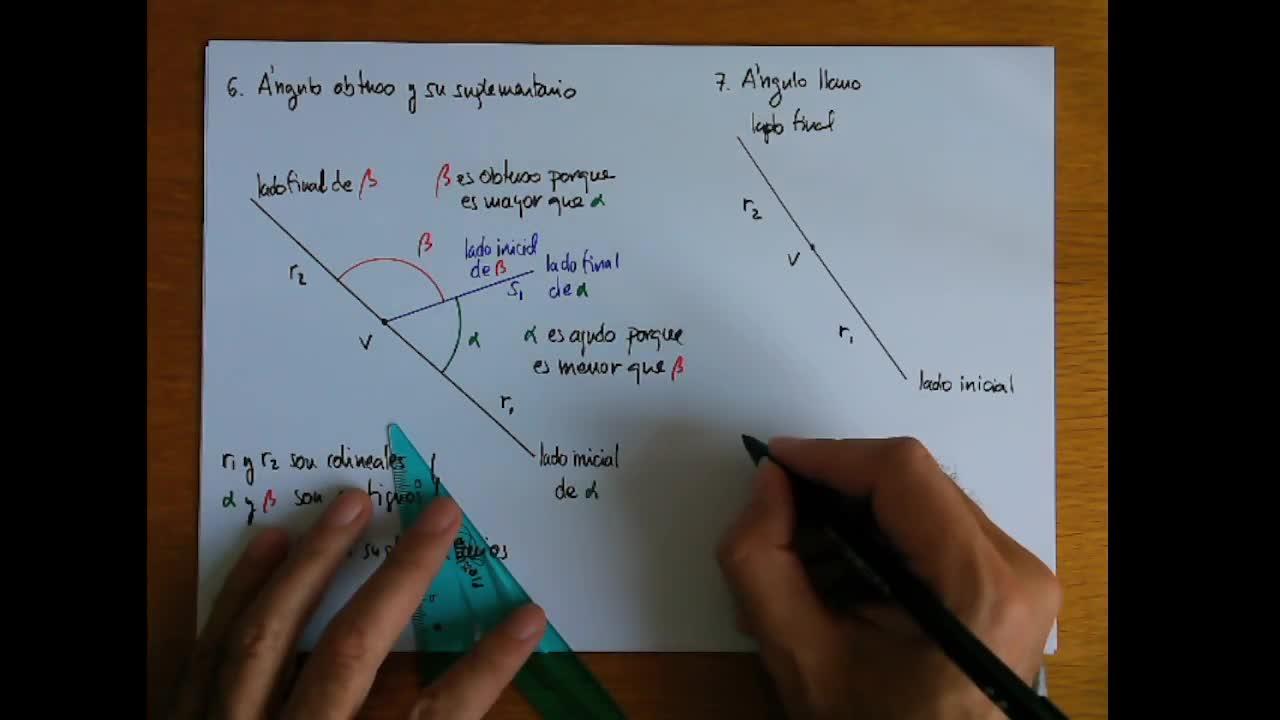 6. Ángulo obtuso y su suplementario
lado final de β
β es obtuso porque
es mayor que α
β
lado inicial
de β
lado final
de α
r₂
s₁
V
α
α es agudo porque
es menor que β
r₁
lado inicial
de α
r₁ y r₂ son colineales
α y β son
7. Ángulo llano
lado final
r₂
V
r₁
lado inicial